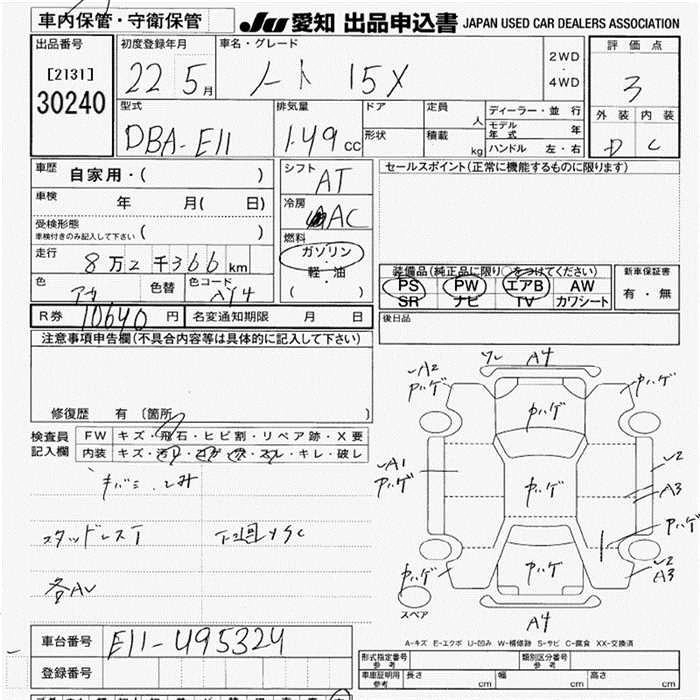 車内保管・守衛保管 JU 愛知 出品申込書 JAPAN USED CAR DEALERS ASSOCIATION
出品番号 初度登録年月 車名・グレード 2WD・4WD 評価点
[2131] 22 5月 ノート 15X 3
30240 外装 内装
D C
型式 排気量 ドア 定員 人 ディーラー・並行
モデル年式 年
DBA-E11 1.49cc 形状 積載 kg ハンドル 左・右
車歴 自家用・( ) シフト AT セールスポイント(正常に機能するものに限ります)
車検 年 月( 日) 冷房 AC
受検形態 ( )
車検付きのみ記入して下さい
燃料 ガソリン・軽・油 ( )
走行 8万2千366km
装備品(純正品に限り○をつけてください) 新車保証書
色 アカ 色替 色コード AY4
PS PW エアB AW 有・無
SR ナビ TV カワシート
R券 10640円 名変通知期限 月 日 後日品
注意事項申告欄(不具合内容等は具体的に記入して下さい)
修復歴 有 (箇所 )
検査員記入欄 FW キズ・飛石・ヒビ割・リペア跡・X要
内装 キズ・汚れ・コゲ・穴・スレ・キレ・破レ
スタッドレスT 下廻サC
各AU
ワレ A4
A2 カハゲ カハゲ カハゲ
A1 カハゲ カハゲ 2 A3
カハゲ
カハゲ カハゲ 2 A3
スペア A4
A-キズ E-エクボ U-凹み W-補修跡 S-サビ C-腐食 XX-交換済
車台番号 E11-495324
登録番号
形式指定番号 参考 類別区分番号 参考
車庫証明用 参考 長さ cm 幅 cm 高さ cm